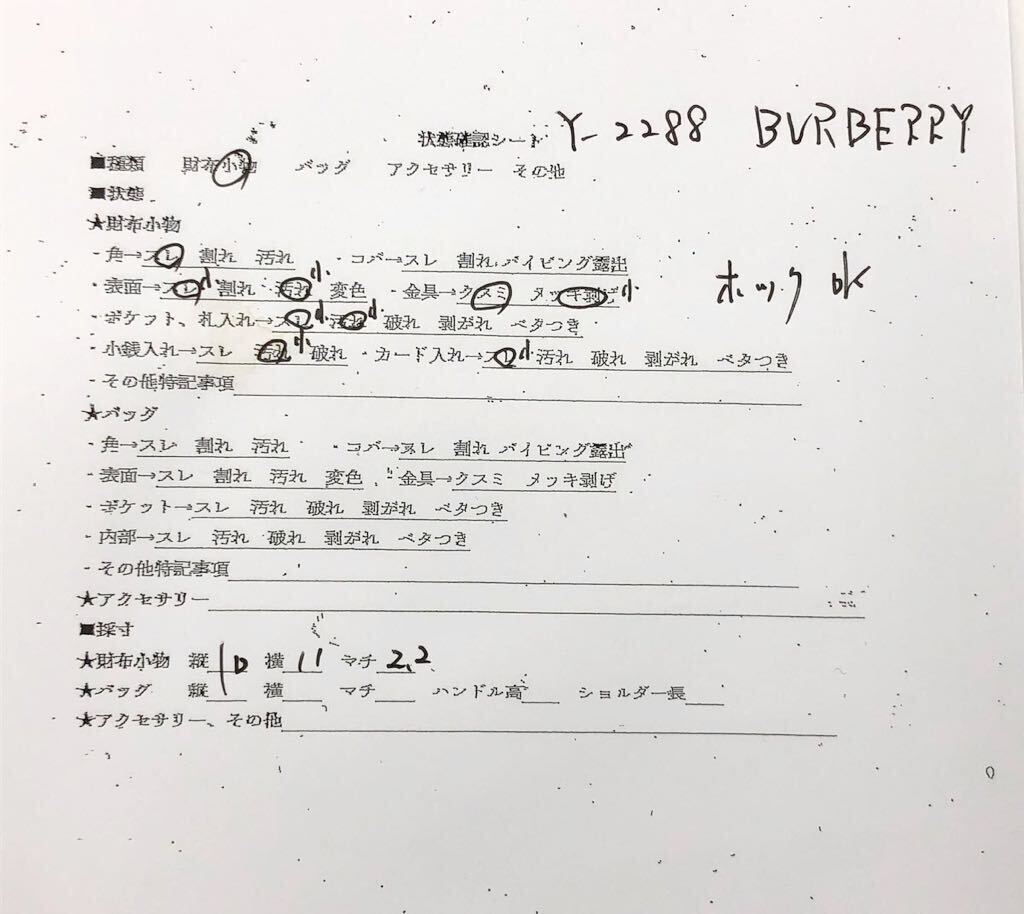 状態確認シート Y-2288 BURBERRY
■種類 財布小物 バッグ アクセサリー その他
■状態
★財布小物
・角→スレ 割れ 汚れ ・コバ→スレ 割れ パイピング露出
・表面→スレ小 割れ 汚れ小 変色 ・金具→クスミ メッキ剥げ小 ホック OK
・ポケット、札入れ→スレ小 汚れ小 破れ 剥がれ ベタつき
・小銭入れ→スレ 汚れ小 破れ ・カード入れ→スレ小 汚れ 破れ 剥がれ ベタつき
・その他特記事項
★バッグ
・角→スレ 割れ 汚れ ・コバ→スレ 割れ パイピング露出
・表面→スレ 割れ 汚れ 変色 ・金具→クスミ メッキ剥げ
・ポケット→スレ 汚れ 破れ 剥がれ ベタつき
・内部→スレ 汚れ 破れ 剥がれ ベタつき
・その他特記事項
★アクセサリー
■採寸
★財布小物 縦10 横11 マチ2.2
★バッグ 縦 横 マチ ハンドル高 ショルダー長
★アクセサリー、その他